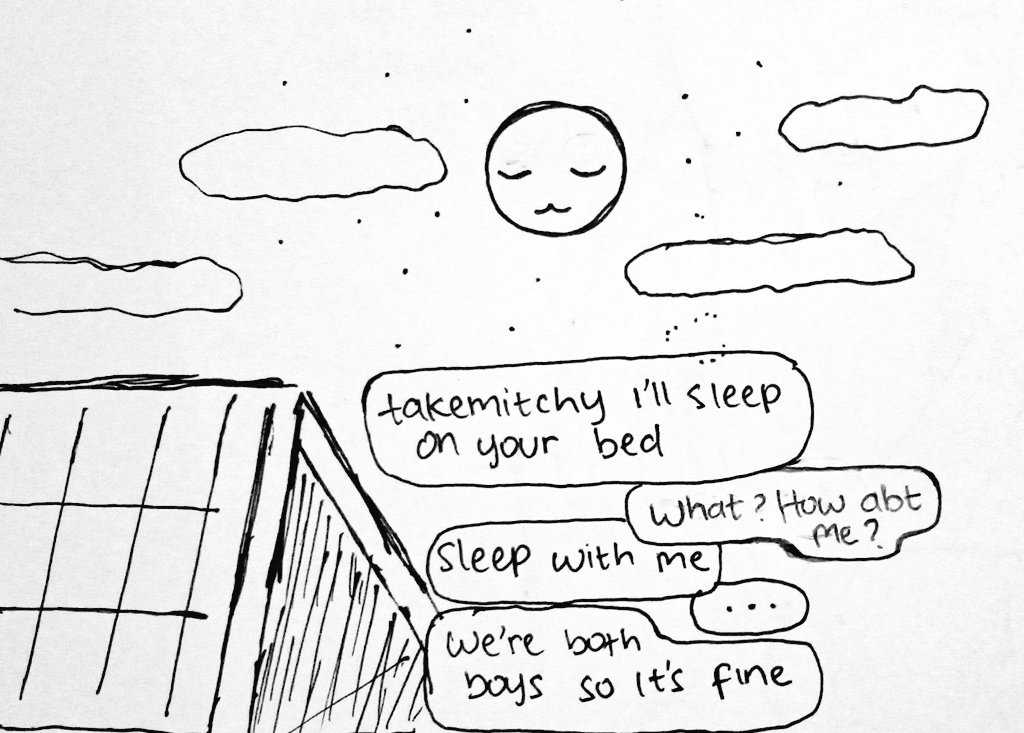 takemitchy I'll sleep
on your bed
What? How abt
me?
sleep with me
...
we're both
boys so it's fine